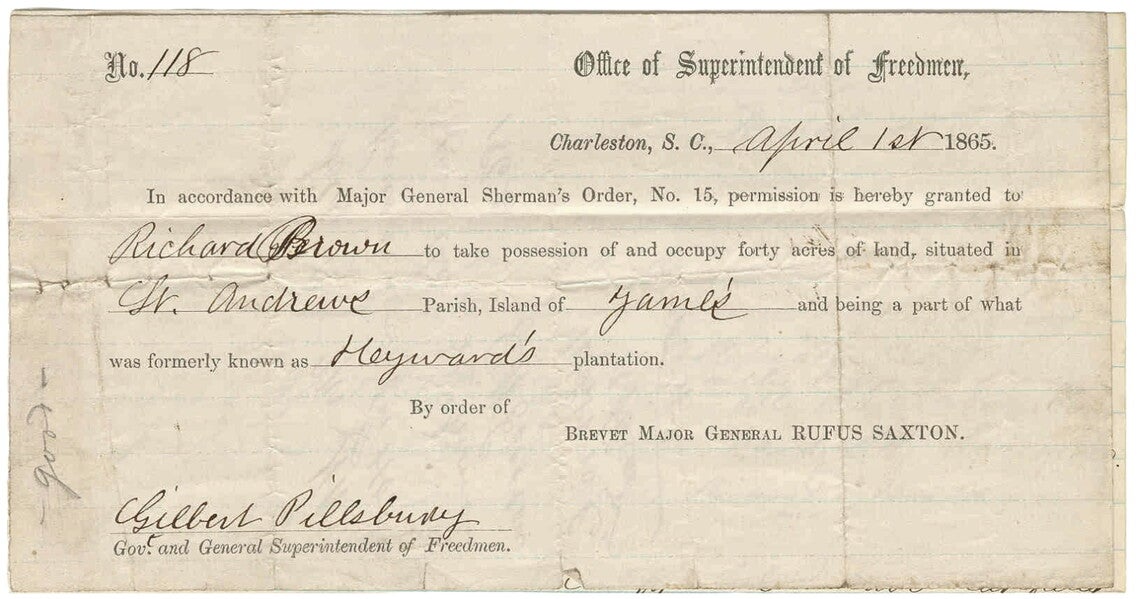 No. 118
Office of Superintendent of Freedmen,
Charleston, S. C., April 1st 1865.
In accordance with Major General Sherman's Order, No. 15, permission is hereby granted to
Richard Brown to take possession of and occupy forty acres of land, situated in
St. Andrews Parish, Island of James and being a part of what
was formerly known as Heyward's plantation.
By order of
BREVET MAJOR GENERAL RUFUS SAXTON.
Gilbert Pillsbury
Gov't. and General Superintendent of Freedmen.
good